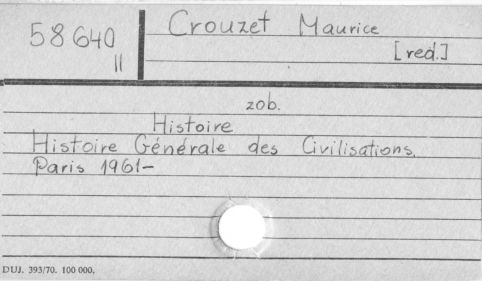 58640
II
Crouzet Maurice
[red.]
zob.
Histoire
Histoire Générale des Civilisations.
Paris 1961-
DUJ. 393/70. 100 000.